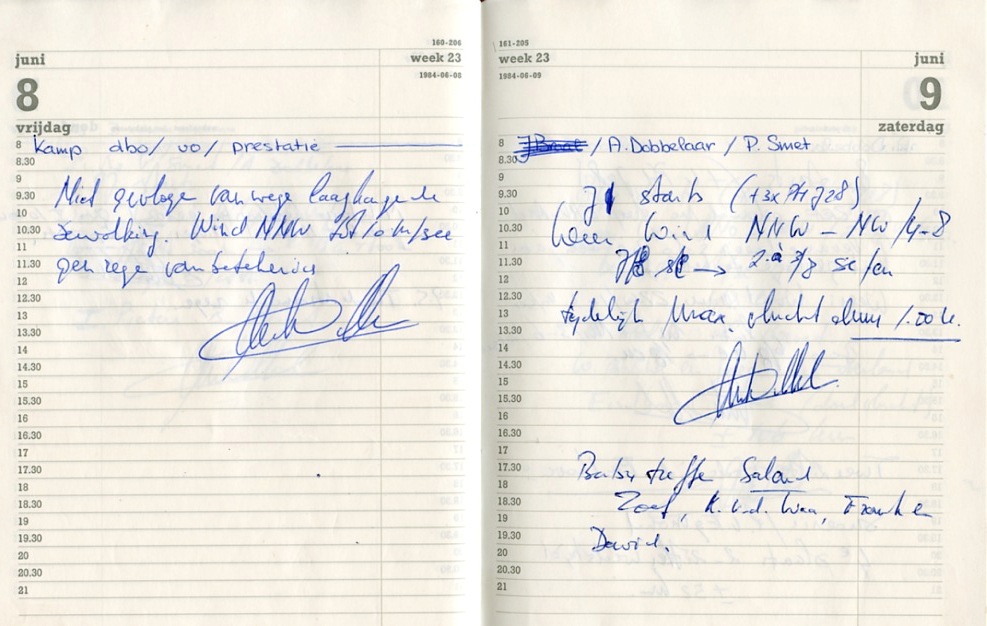 juni
160-206
week 23
1984-06-08
8
vrijdag
8 Kamp dbo/ vo/ prestatie
8.30
9
9.30 Niet gevlogen vanwege laaghangende
10
10.30 bewolking. Wind NNW tot 10 m/sec
11
11.30 geen regen van betekenis
12
12.30
13
13.30
14
14.30
15
15.30
16
16.30
17
17.30
18
18.30
19
19.30
20
20.30
21
161-205
week 23
juni
1984-06-09
9
zaterdag
8 / A. Dobbelaar / P. Smet
8.30
9
9.30 starts
10
10.30 Wind NNW – NW / 4-8
11
11.30 →
12
12.30
13 tijdelijk Max. vlucht 1.00 u.
13.30
14
14.30
15
15.30
16
16.30
17
17.30 Salland
18
18.30 Zoef, K. v.d.
19
19.30 David.
20
20.30
21